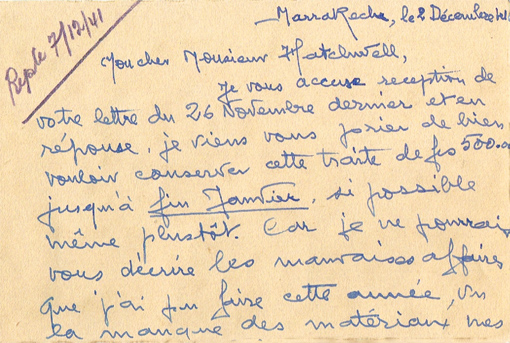 Marrakech, le 2 Décembre 1941
Rep le 7/12/41
Mon cher Monsieur Hatchwell,
Je vous accuse reception de
votre lettre du 26 Novembre dernier et en
réponse, je viens vous prier de bien
vouloir conserver cette traite de frs 500.00
jusqu'à fin Janvier, si possible
même plustôt. Car je ne pourrais
vous décrire les mauvaises affaires
que j'ai pu faire cette année, vu
la manque des matériaux mes